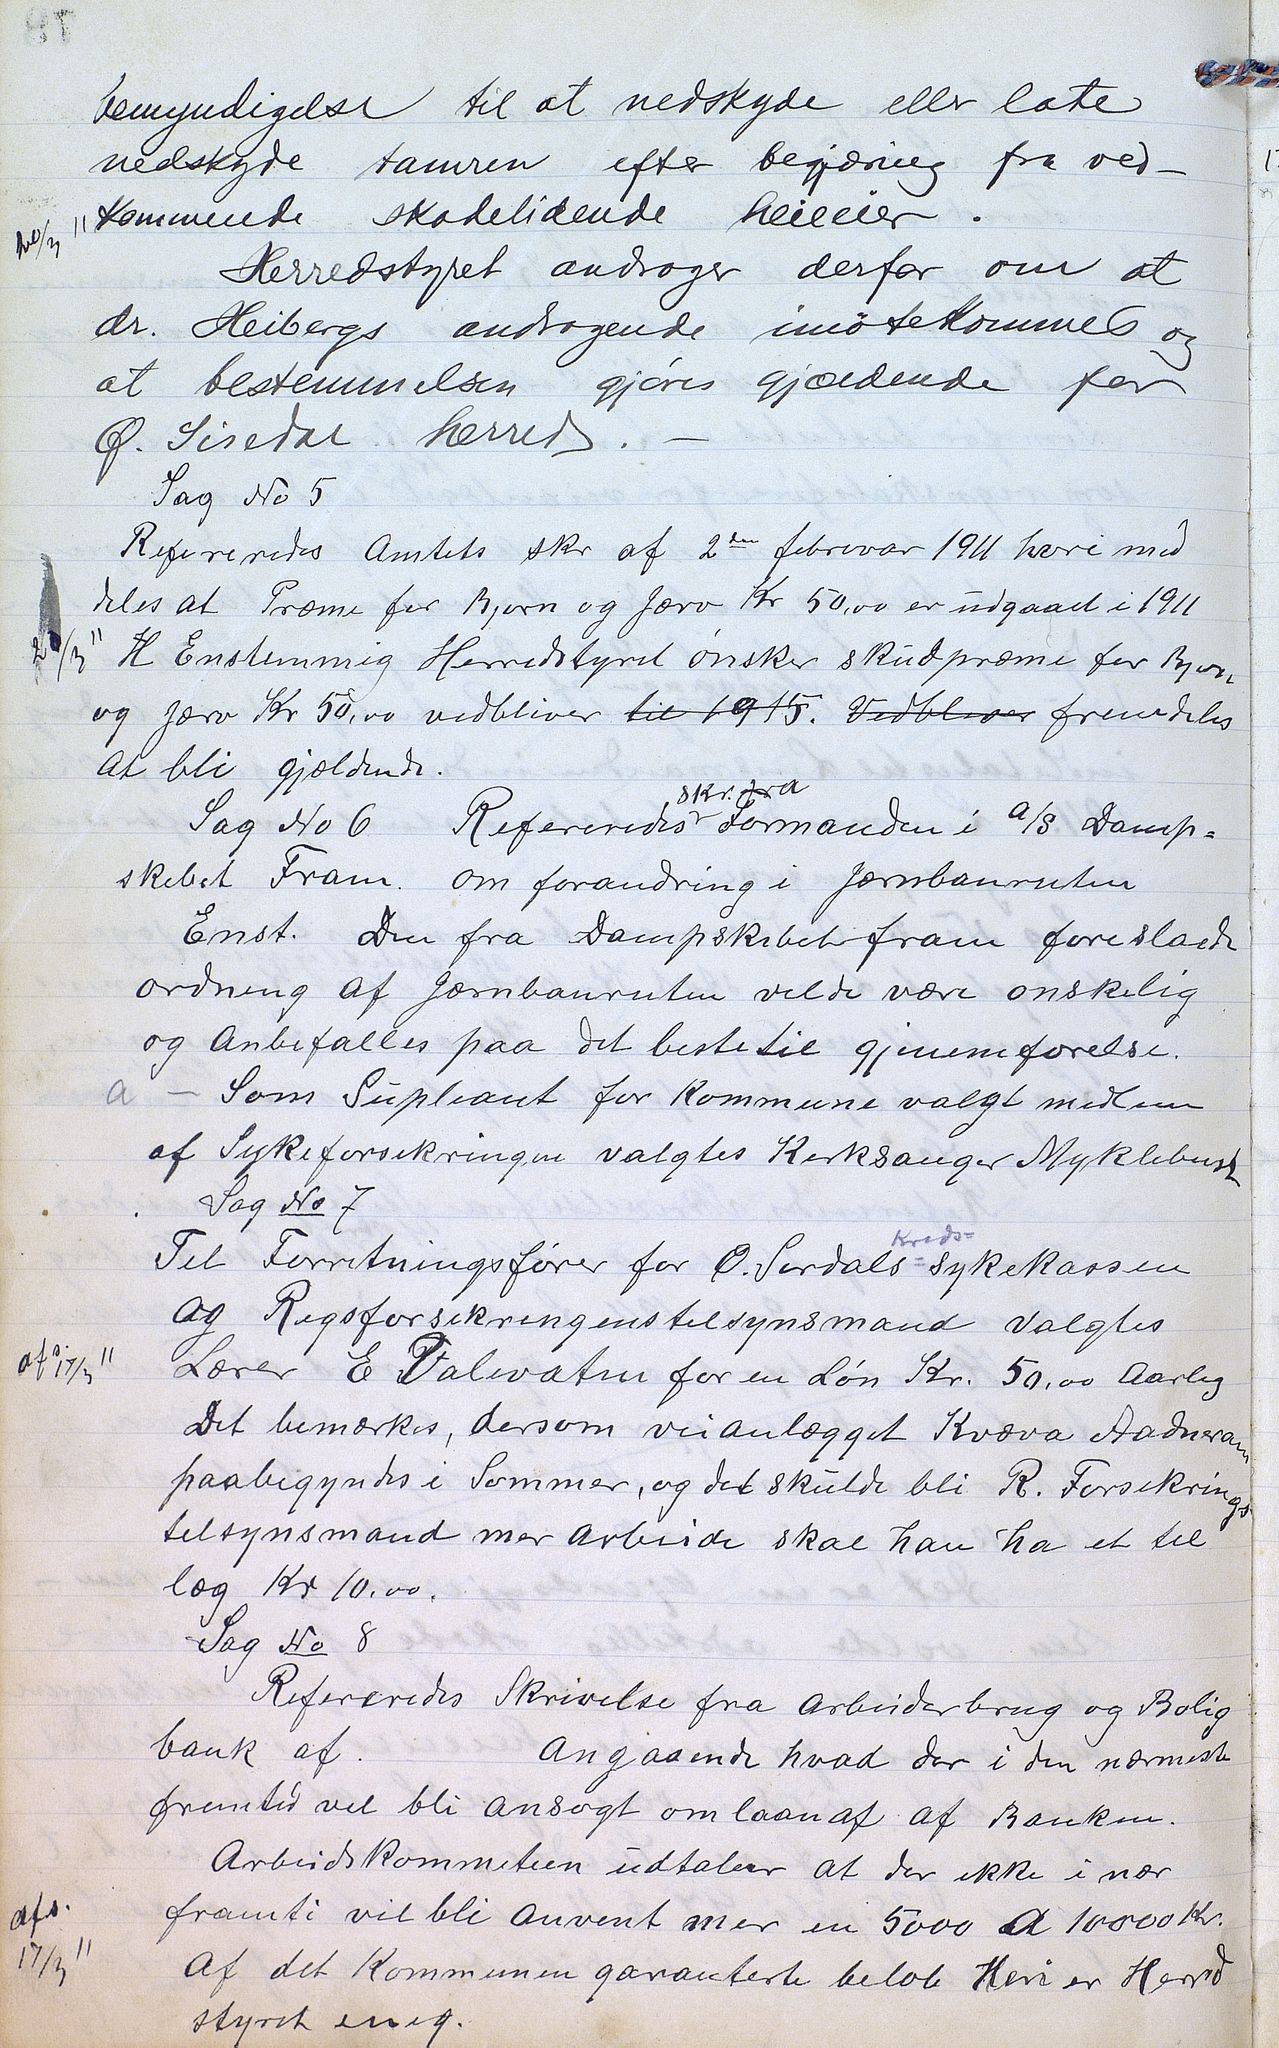 bemyndigelse til at nedskyde eller late
nedskyde tamren efter begjæring fra ved-
kommende skadelidende heieier.
Herredstyret androger derfor om at
dr. Heibergs andragende imøtekommes og
at bestemmelsen gjøres gjældende for
Ø. Siredal herred. —
Sag No 5
Refereredes Amtets skr af 2den februar 1911 hvori med
deles at Præme for Bjørn og Jærv Kr 50,00 er udgaaet i 1911
2/3 11 H Enstemmig Herredstyret ønsker skudpræme for Bjørn
og Jærv Kr 50,00 vedbliver til 1915. Vedbliver fremdeles
at bli gjældende.
skr. fra
Sag No 6 Refereredes Formanden i A/S Damp-
skibet Fram. om forandring i Jærnbanruten
Enst. Den fra Dampskibet fram foreslaede
ordning af Jærnbanruten vilde være onskelig
og Anbefalles paa det beste til gjenemførelse.
a — Som Supleant for Kommune valgt medlem
af Sykeforsekringen valgtes Kirksanger Myklebust
Sag No 7
Kreds-
Til Forretningsfører for Ø. Sirdals-sykekassen
og Rigsforsikringenstilsynsmand valgtes
afs. 17/3 11 Lærer E Valevatn for en Løn Kr. 50,00 Aarlig
Det bemærkes, dersom veianlægget Kvæva Aadneram
paabegyndes i Sommer, og det skulde bli R. Forsekrings
telsynsmand mer arbeide skal han ha et til
læg Kr 10,00.
Sag No 8
Refereredes Skrivelse fra Arbeiderbrug og Bolig
bank af. Angaaende hvad der i den nærmeste
fremtid vil bli ansøgt om laan af af Banken.
Arbeidskommeteen udtaler at der ikke i nær
framti vil bli anvent mer en 5000 a 10000 Kr.
afs. 17/3 11
Af det Kommunen garanterte beløb Heri er Herred
styret eneg.